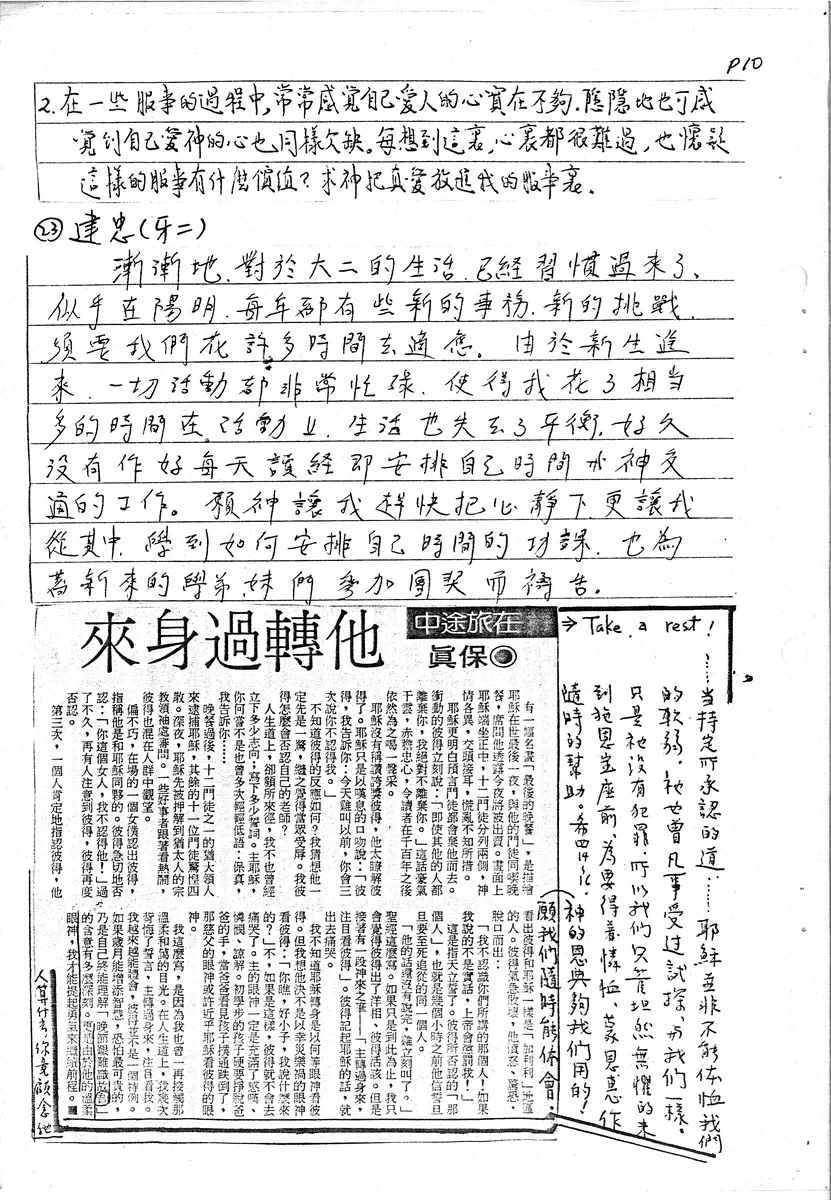 P10
2. 在一些服事的過程中,常常感覺自己愛人的心實在不夠.隱隱地也可感
覺到自己愛神的心也同樣欠缺。每想到這裏,心裏都很難過,也懷疑
這樣的服事有什麼價值?求神把真愛放進我的服事裏.
㉓ 建忠(牙二)
漸漸地.對於大二的生活.已經習慣過來了、
似乎在陽明.每年都有些新的事務.新的挑戰.
須要我們花許多時間去適應。由於新生進
來.一切活動都非常忙碌.使得我花了相當
多的時間在活動上.生活也失去了平衡.好久
沒有作好每天讀經即安排自己時間水神交
通的工作。願神讓我趕快把心靜下更讓我
從其中.學到如何安排自己時間的功課.也為
著新來的學弟.妹們參加團契而禱告。
在旅途中
他轉過身來
●保眞
有一幅名畫「最後的晚餐」,是描繪
耶穌在世最後一夜,與他的門徒同喫晚
餐,席間他透露今夜將被出賣。畫面上
耶穌端坐正中,十二門徒分列兩側,神
情各異,交頭接耳,慌亂不知所措。
耶穌更明白預言門徒都會棄他而去。
衝動的彼得立刻說:「即使其他的人都
離棄你,我絕對不離棄你。」這話豪氣
干雲,赤膽忠心,令讀者在千百年之後
依然為之喝一聲采。
耶穌沒有稱讚誇獎彼得,他太瞭解彼
得了。耶穌只是以嘆息的口吻說:「彼
得,我告訴你:今天雞叫以前,你會三
次說你不認得我。」
不知道彼得的反應如何?我猜想他一
定先是一驚,繼之覺得當眾受辱。我彼
得怎麼會否認自己的老師?
人生道上,卻顧所來徑,我不也曾經
立下多少志向;寫下多少誓詞。主耶穌,
你何嘗不是也曾多次輕輕低語:保真,
我告訴你……
晚餐過後,十二門徒之一的猶大領人
來逮捕耶穌,其餘的十一位門徒驚惶四
散。深夜,耶穌先被押解到猶太人的宗
教領袖處審問。一些好事者跟著看熱鬧,
彼得也混在人群中觀望。
偏不巧,在場的一個女僕認出彼得,
指稱他是和耶穌同夥的。彼得急切地否
認:「你這個女人,我不認得他!」過
了不久,再有人注意到彼得,彼得再度
否認。
第三次,一個人肯定地指認彼得,他
看出彼得和耶穌一樣是「加利利」地區
的人。彼得氣急敗壞,他憤怒、驚恐,
脫口而出:
「我不認識你們所講的那個人!如果
我說的不是實話,上帝會懲罰我!」
這是指天立誓了。彼得所否認的「那
個人」,也就是幾個小時之前他信誓旦
旦要至死追從的同一個人。
「他的話還沒有說完,雞立刻叫了。」
聖經這麼寫。如果只是到此為止,我只
會覺得彼得出了洋相、彼得活該。但是
接著有一段神來之筆——「主轉過身來,
注目看彼得」。彼得記起耶穌的話,就
出去痛哭。
我不知道耶穌轉身是以何等眼神看彼
得。但我想他決不是以幸災樂禍的眼神
看彼得:「你瞧,好小子,我說什麼來
的?」不,如果是這樣,彼得就不會去
痛哭了。主的眼神一定是充滿了慰嘆、
憐憫、諒解。初學步的孩子硬要掙脫爸
爸的手,當爸爸看見孩子撲通跌倒了,
那慈父的眼神或許近乎耶穌看彼得的眼
神。
我這麼寫,是因為我也曾一再接觸那
溫柔和藹的目光。在人生道上,我幾次
背悔了誓言,主轉過身來,注目看我。
我越來越能體會,彼得並不是一個特例。
如果歲月能增添智慧,恐怕最可貴的,
乃是自己終能理解「晚節艱難識故吾」
的含意有多麼深刻。更是由於他的溫柔
眼神,我才能提起勇氣來繼續前程。■
人算什麼,你竟顧念他
⇒ Take a rest!
……當持定所承認的道……耶穌並非不能体恤我們
的軟弱.祂也曾凡事受過試探.与我們一樣.
只是祂沒有犯罪.所以我們只管坦然無懼的來
到施恩宝座前,為要得着憐恤、蒙恩惠作
隨時的幫助。希四14~16
神的恩典夠我們用的!
願我們隨時能体會.